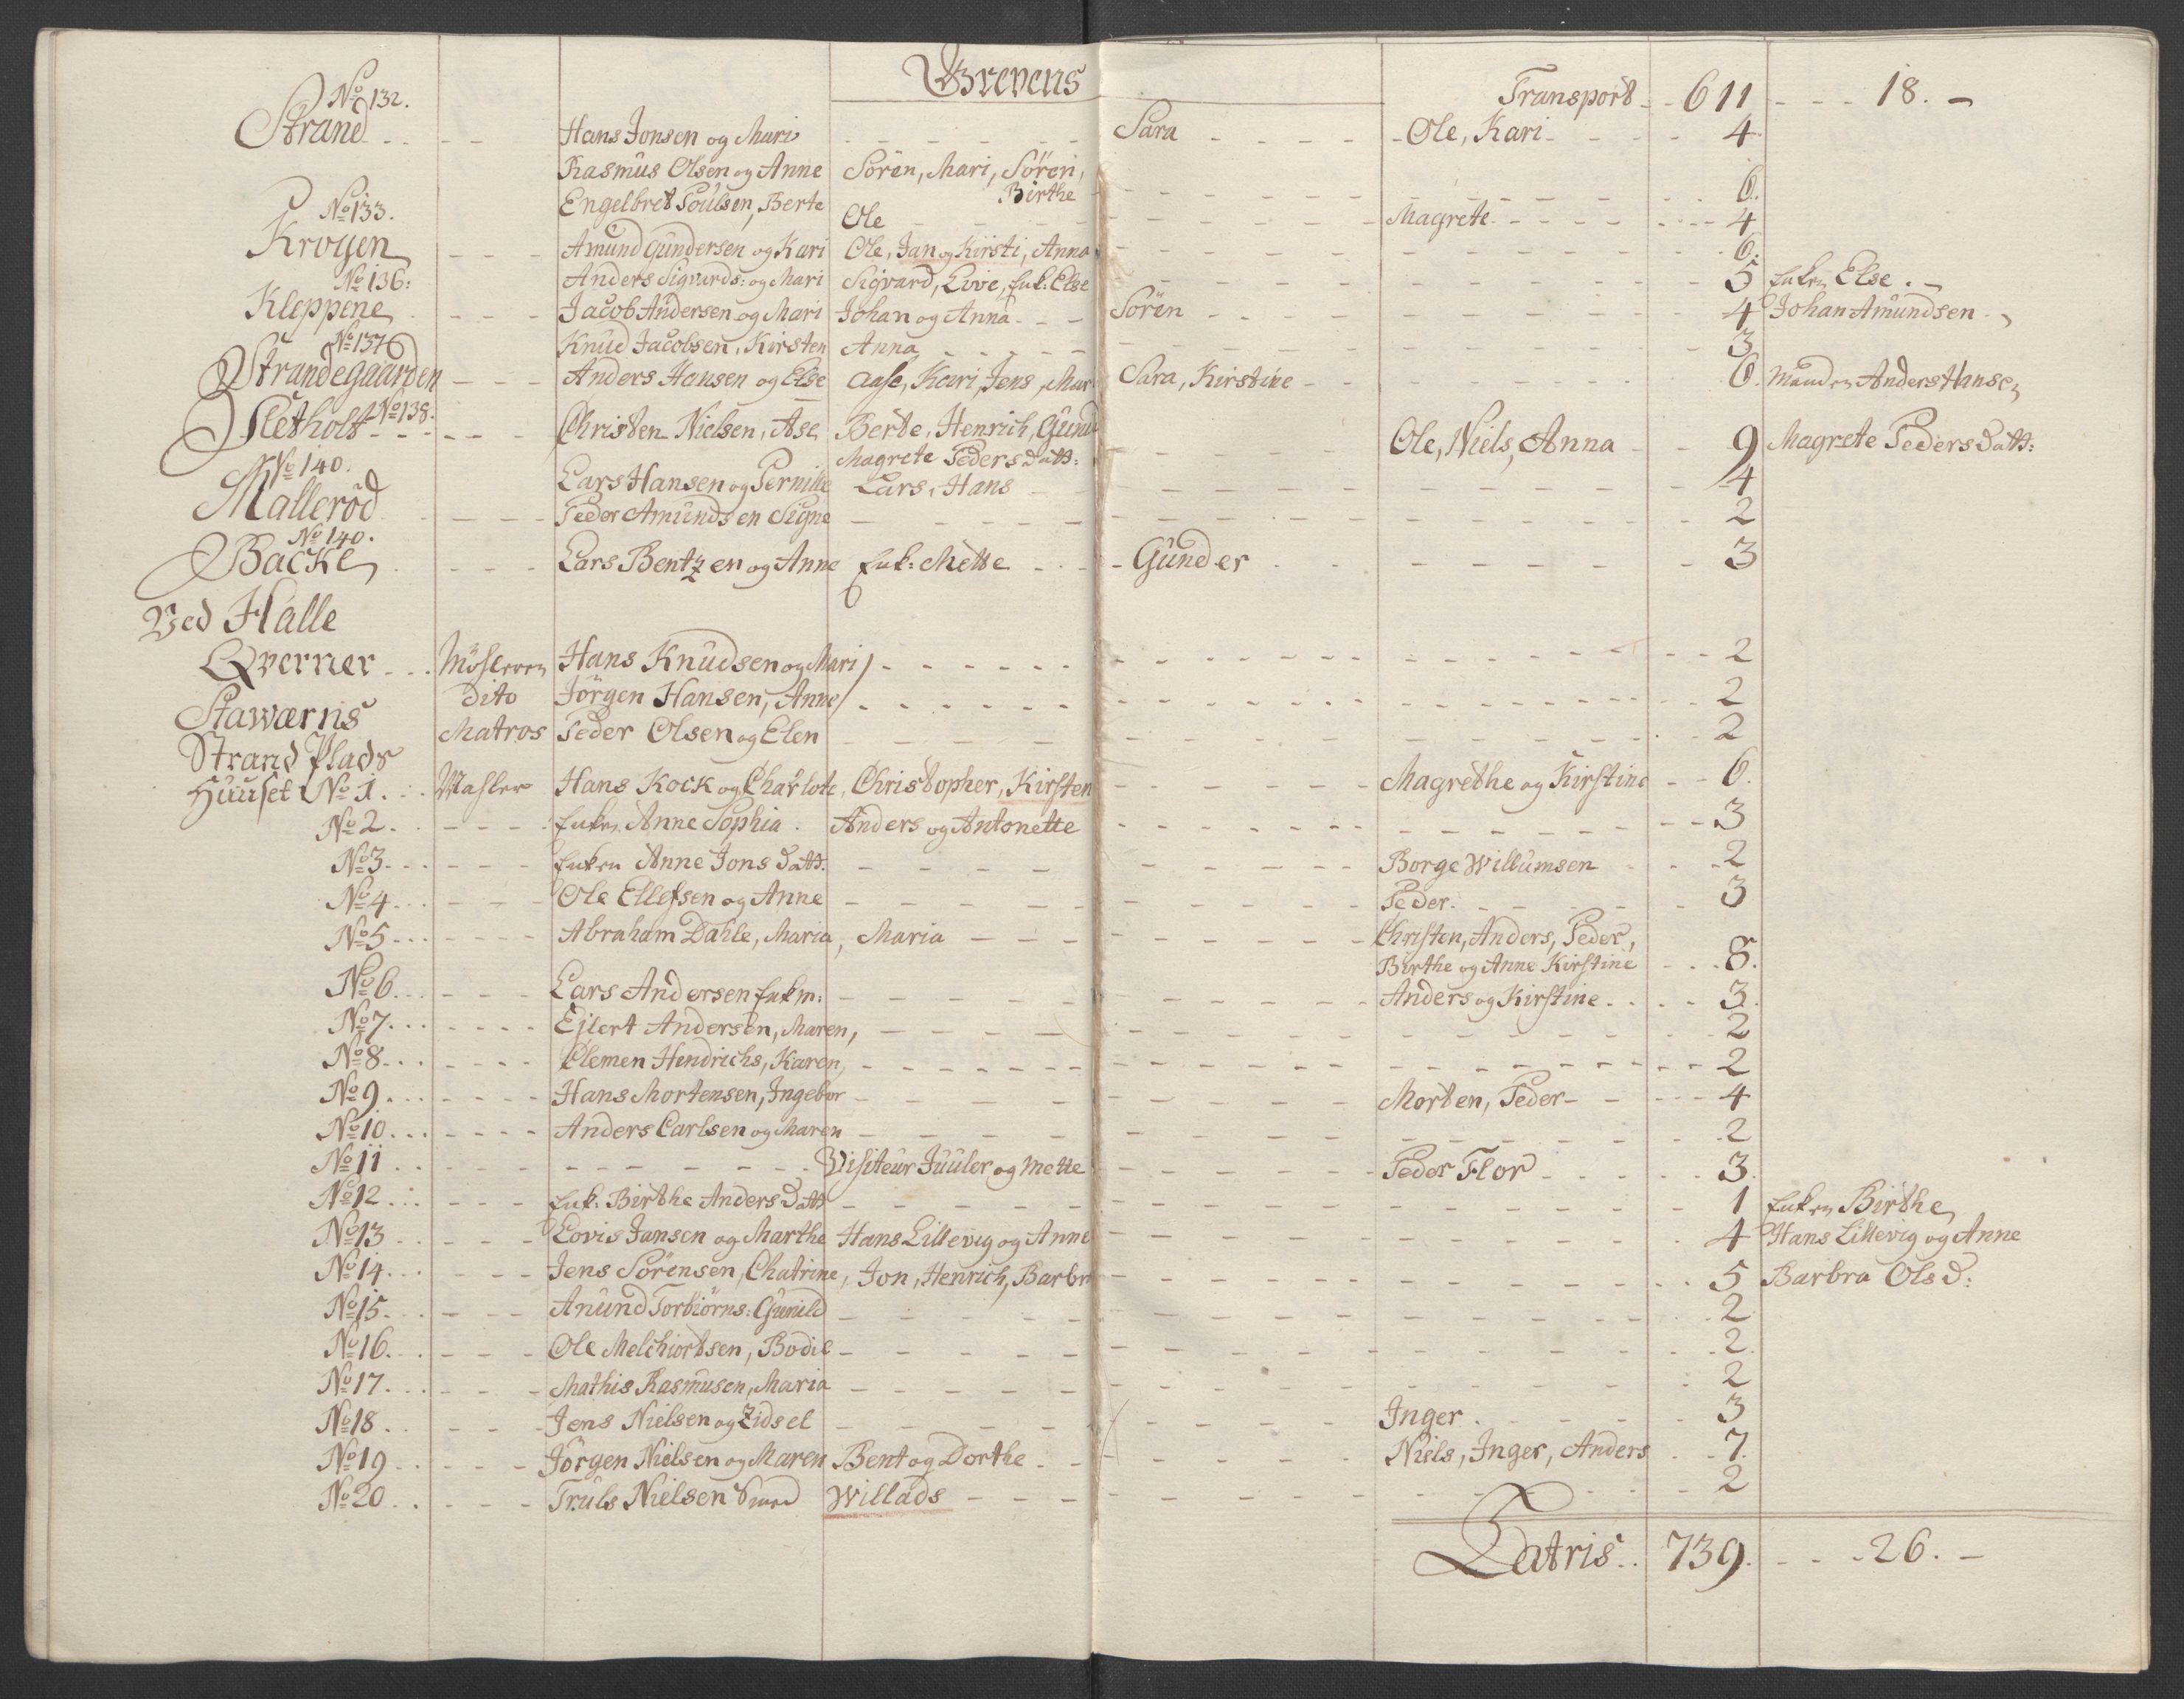 Grevens
Transport 611 18. -
No 132.
Strand Hans Jonsen og Mari Sara Ole, Kari 4
Rasmus Olsen og Anne Sören, Mari, Sören, Birthe 6.
No 133. Engelbret Poulsen, Berte Ole Magrete 4
Kroyen Amund Gundersen og Kari Ole, Jan og Kirsti, Anna 6.
No 136: Anders Sigvards: og Mari Sigvard, Live, Enk: Else 5 Enken Else. -
Kleppene Jacob Andersen og Mari Johan og Anna Sören 4 Johan Amundsen
No 137 Knud Jacobsen, Kirsten Anna 3
Strandegaarden Anders Hansen og Else Aase, Kari, Jens, Mari Sara, Kirstine 6. Manden Anders Hansen
Sletholt No 138. Christen Nielsen, Ase Berte, Henrich, Gund Ole, Niels, Anna 9 Magrete Peders Datt:
Magrete Peders Datt:
No 140. Lars Hansen og Pernille Lars, Hans 4
Malleröd Peder Amundsen Signe 2
No 140.
Backe Lars Bentzen og Anne Enk: Mette Gunder 3
Ved Halle
Qverner Mölleren Hans Knudsen og Mari 2
dito Jörgen Hansen, Anne 2
Stawærns Matros Peder Olsen og Elen 2
Strand Plads
Huuset No 1. Mahler Hans Kock og Charlote, Christopher, Kirsten Magrethe og Kirstine 6.
No 2. Enken Anne Sophia. Anders og Antonette 3
No 3. Enken Anne Jons Datt: Borge Willumsen 2
No 4. Ole Ellefsen og Anne Peder. 3
No 5. Abraham Dahle, Maria, Maria Christen, Anders, Peder,
Birthe og Anne Kirstine 8.
No 6. Lars Andersen Enkm: Anders og Kirstine. 3.
No 7. Ejlert Andersen, Maren, 2
No 8. Clemen Hendrichs, Karen, 2
No 9. Hans Mortensen, Ingebor Morten, Peder 4
No 10. Anders Carlsen og Maren 2
No 11 Visiteur Juuler og Mette Peder Flor 3.
No 12 Enk: Birthe Anders Datt 1 Enken Birthe
No 13 Lovis Jansen og Marthe Hans Lillevig og Anne 4 Hans Lillevig og Anne
No 14. Jens Sörensen, Chatrine, Jon, Henrich, Barbr 5 Barbra Ols D:
No 15. Anund Torbiörns: Gunild 2
No 16. Ole Melchiortsen, Bodil 2.
No 17. Mathis Rasmusen, Maria 2
No 18. Jens Nielsen og Zidsel Inger. 3
No 19 Jörgen Nielsen og Maren Bent og Dorthe Niels, Inger, Anders 7.
No 20. Truls Nielsen Smed Willads 2
Latris. 739. 26. -